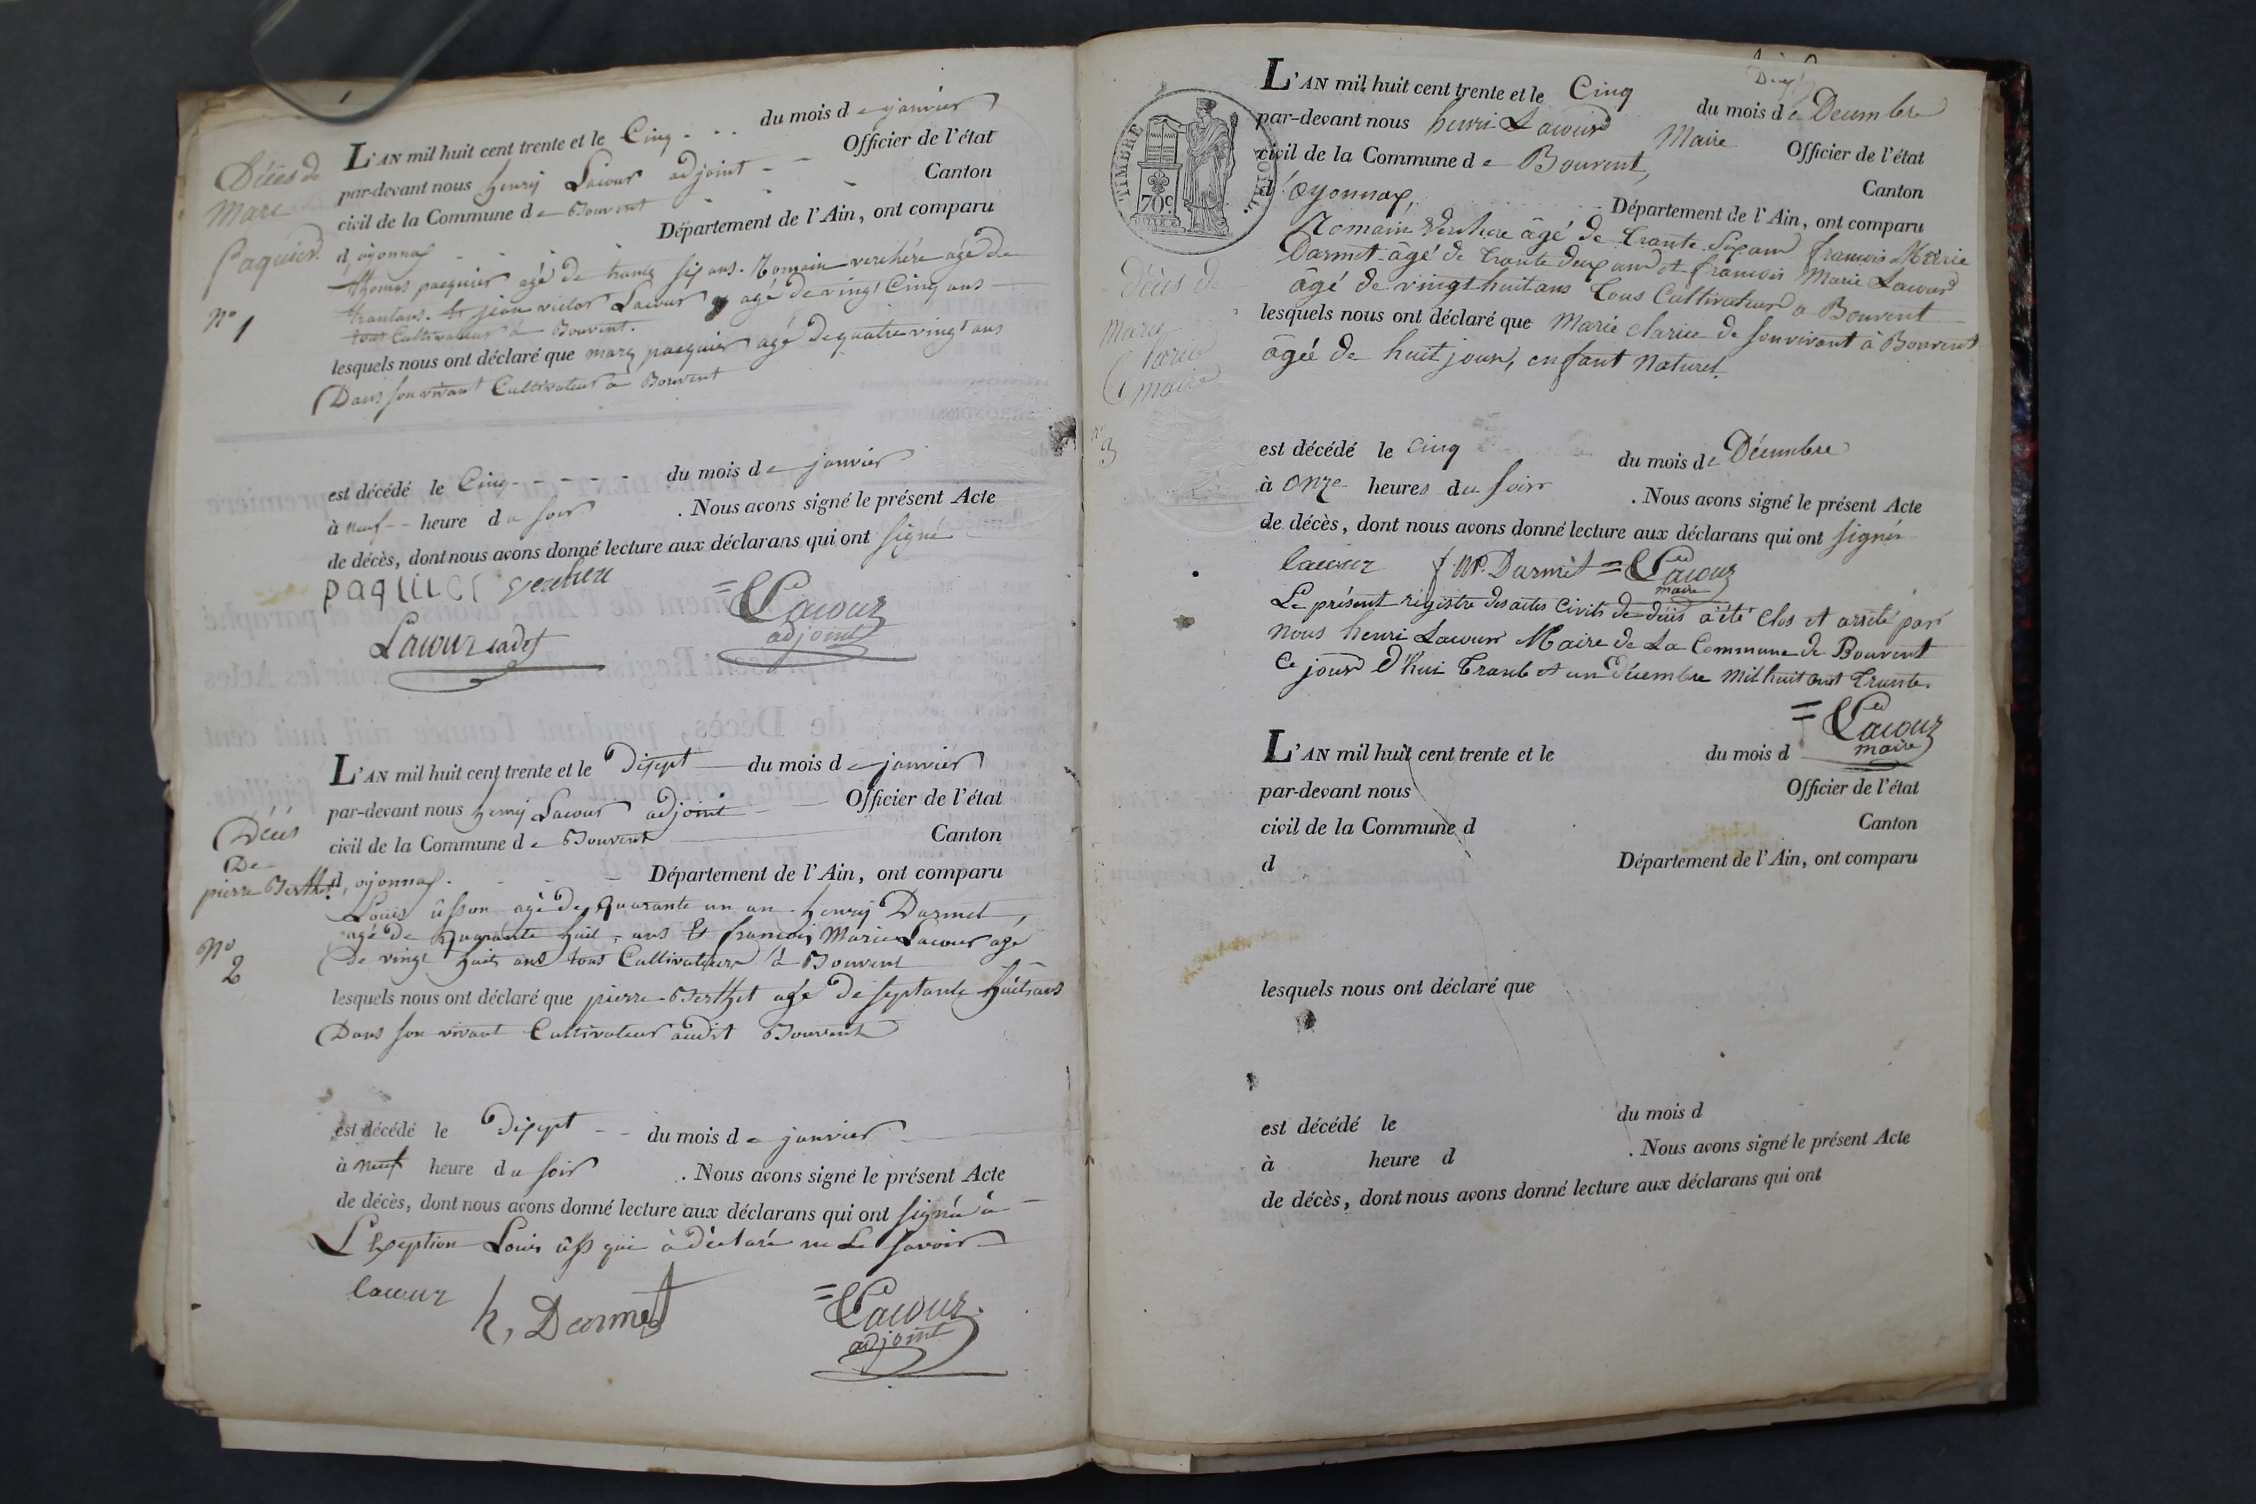 L'AN mil huit cent trente et le Cinq du mois de janvier
par-devant nous henrij Lacour adjoint Officier de l'état
civil de la Commune de Bouvent Canton
d'oyonnax Département de l'Ain, ont comparu
thomas paequier agé de trante six ans. Romain verchére agé de
trantans. et jean victor Lacour agé de vingt Cinq ans
tous Cultivateur à Bouvent.
lesquels nous ont déclaré que marq paequier agé de quatre vingt ans
Dans son vivant Cultivateur à Bouvent
Décès de
Marc
Paquier
N° 1
est décédé le Cinq du mois de janvier
à neuf heure du soir. Nous avons signé le présent Acte
de décès, dont nous avons donné lecture aux déclarans qui ont signé
paquier verchere
Lacour cadet
Lacour
adjoint
L'AN mil huit cent trente et le Disept du mois de janvier
par-devant nous henrij Lacour adjoint Officier de l'état
civil de la Commune de Bouvent Canton
d'oyonnax. Département de l'Ain, ont comparu
Louis ûsson agé de quarante un an henrij Darmet
agé de quarante huit ans Et francois Marie Lacour agé
De vingt huit ans tous Cultivateurs à Bouvent
lesquels nous ont déclaré que pierre Berthet agé de septante huit ans
Dans son vivant Cultivateur audit Bouvent
Décès
De
pierre Berthet
N° 2
est décédé le Disept du mois de janvier
à neuf heure du soir. Nous avons signé le présent Acte
de décès, dont nous avons donné lecture aux déclarans qui ont signé à
L'Exeption Louis ûss qui à déclaré ne Le savoir
lacour h, Darmet
Lacour
adjoint
TIMBRE ROYAL.
70c.
L'AN mil huit cent trente et le Cinq du mois de Decembre
par-devant nous henri Lacour Maire Officier de l'état
civil de la Commune de Bouvent, Canton
d'oyonnax, Département de l'Ain, ont comparu
Romain Verchere âgé de trante six ans francois Marie
Darmet âgé de trante deux ans et francois Marie Lacour
âgé de vingt huit ans tous Cultivateurs a Bouvent
lesquels nous ont déclaré que Marie clarice de son vivant à Bouvent
âgée de huit jours, enfant Naturel.
Décès de
Marie
Clarice
N° 3
est décédé le cinq du mois de Décembre
à onze heures du soir. Nous avons signé le présent Acte
de décès, dont nous avons donné lecture aux déclarans qui ont signé
lacour f. M. Darmet Lacour
maire
Le présent régistre des actes civils de décès a été clos et arrêté par
nous henri Lacour Maire de La Commune de Bouvent
Ce jour d'hui trante et un Décembre mil huit cent trante.
Lacour
maire
L'AN mil huit cent trente et le du mois d
par-devant nous Officier de l'état
civil de la Commune d Canton
d Département de l'Ain, ont comparu
lesquels nous ont déclaré que
est décédé le du mois d
à heure d . Nous avons signé le présent Acte
de décès, dont nous avons donné lecture aux déclarans qui ont